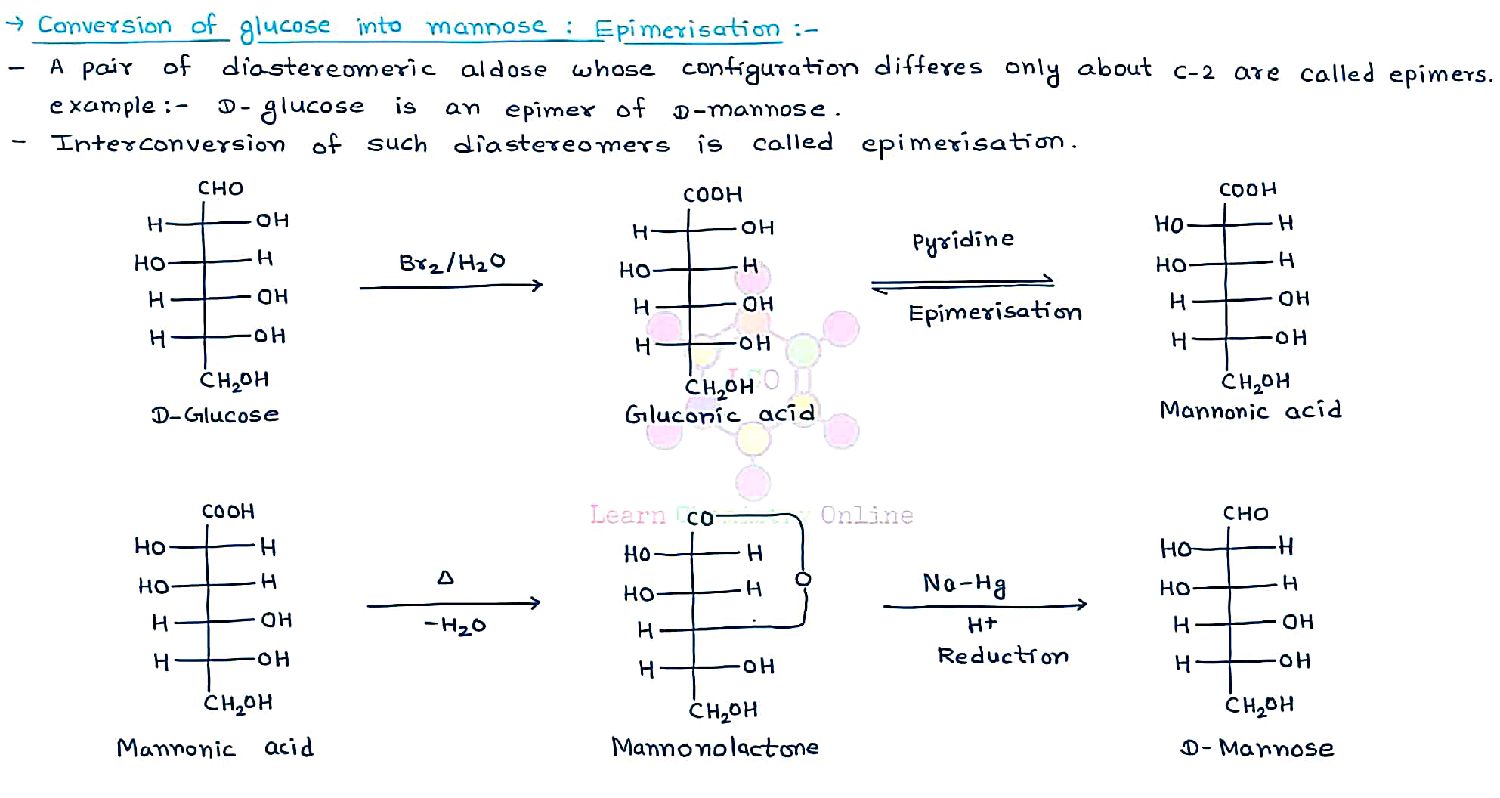 → Conversion of glucose into mannose : Epimerisation :-
- A pair of diastereomeric aldose whose configuration differes only about C-2 are called epimers.
example :- D-glucose is an epimer of D-mannose.
- Interconversion of such diastereomers is called epimerisation.
CHO
H OH
HO H
H OH
H OH
CH₂OH
D-Glucose
Br₂/H₂O
COOH
H OH
HO H
H OH
H OH
CH₂OH
Gluconic acid
Pyridine
Epimerisation
COOH
HO H
HO H
H OH
H OH
CH₂OH
Mannonic acid
Learn Online
COOH
HO H
HO H
H OH
H OH
CH₂OH
Mannonic acid
Δ
-H₂O
CO
HO H
HO H
O
H
H OH
CH₂OH
Mannonolactone
Na-Hg
H+
Reduction
CHO
HO H
HO H
H OH
H OH
CH₂OH
D-Mannose